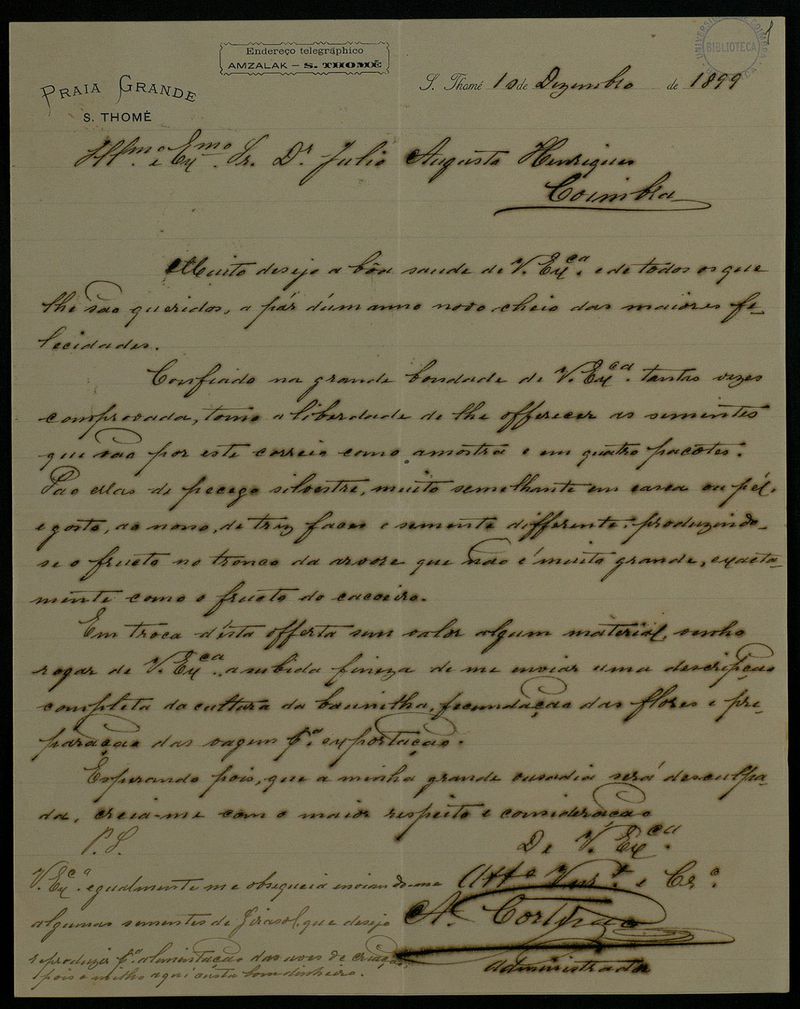 Endereço telegráphico
AMZALAK – S. THOMÉ
UNIVERSI DE COIMBRA
BIBLIOTECA
1
PRAIA GRANDE
S. THOMÉ
S. Thomé 10 de Dezembro de 1899
Illmo e Exmo Sr. Dr Julio Augusto Henriques
Coimbra
Muito desejo a bôa saude de V. Exca. e de todos os que
lhe são queridos, a pár d'um anno novo cheio das maiores fe-
lecidades.
Confiado na grande bondade de V. Exca. tantas vezes
comprovada, tomo a liberdade de lhe offerecer as sementes
que vão por este correio como amostra e em quatro pacotes.
São ellas de pecego silvestre, muito semelhante em casca ou pél.
e gosto, ao nosso, de trez faces e semente differente: produzindo-
se o fructo no tronco da arvore que não é muito grande, exacta-
mente como o fructo do cacoeiro.
Em troca d'ésta offerta sem valor algum material, venho
rogar de V. Exca. a subida fineza de me enviar uma descripção
completa da cultura da baunilha, fecundação das flores e pre-
paração das vagem pa. exportação.
Esperando pois, que a minha grande ousadia será desculpa-
da, creia-me com o maior respeito e consideração
De V. Exca.
Atto Vnr. e Cro.
A. Cortezão
Administrador
P.S.
V. Exca egualmente me obsequeia enviando-me
algumas sementes de Girasol, que desejo
reproduzir pa. alimentação das aves de criação,
pois o milho aqui custa bom dinheiro.